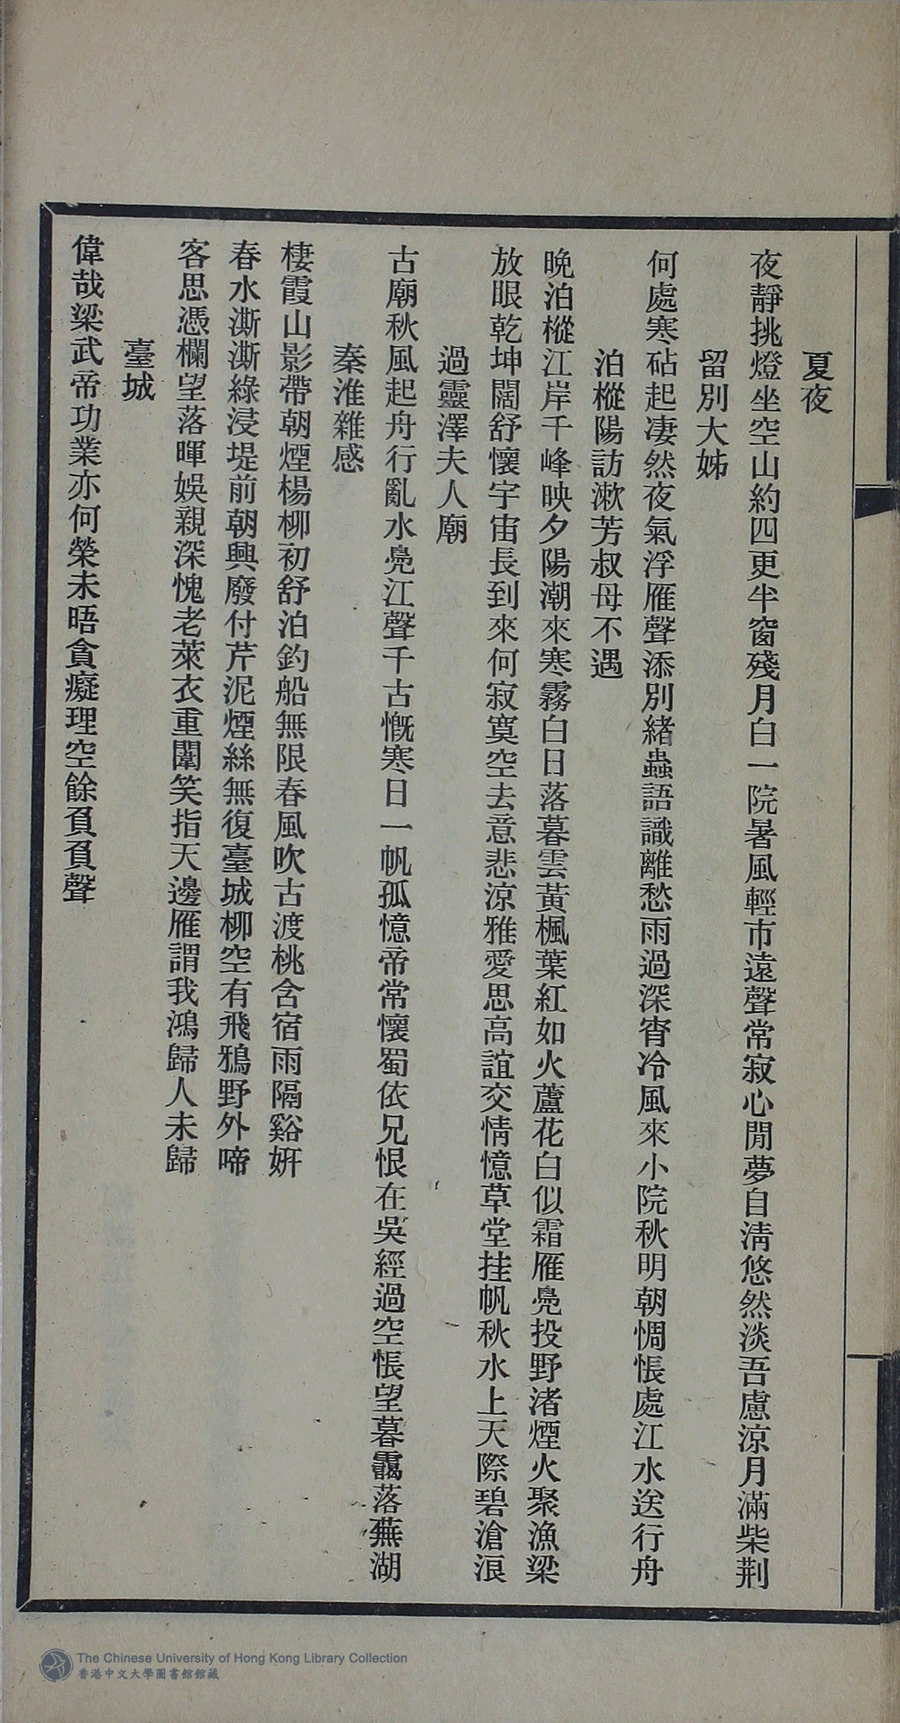 夏夜
夜靜挑燈坐空山約四更半窗殘月白一院暑風輕市遠聲常寂心閒夢自淸悠然淡吾慮涼月滿柴荆
留別大姊
何處寒砧起凄然夜氣浮雁聲添別緒蟲語識離愁雨過深宵冷風來小院秋明朝惆悵處江水送行舟
泊樅陽訪漱芳叔母不遇
晚泊樅江岸千峰映夕陽潮來寒霧白日落暮雲黃楓葉紅如火蘆花白似霜雁鳧投野渚煙火聚漁梁
放眼乾坤闊舒懷宇宙長到來何寂寞空去意悲涼雅愛思高誼交情憶草堂挂帆秋水上天際碧滄浪
過靈澤夫人廟
古廟秋風起舟行亂水鳧江聲千古慨寒日一帆孤憶帝常懷蜀依兄恨在吳經過空悵望暮靄落蕪湖
秦淮雜感
棲霞山影帶朝煙楊柳初舒泊釣船無限春風吹古渡桃含宿雨隔谿姸
春水澌澌綠浸堤前朝興廢付芹泥煙絲無復臺城柳空有飛鴉野外啼
客思憑欄望落暉娛親深愧老萊衣重闈笑指天邊雁謂我鴻歸人未歸
臺城
偉哉梁武帝功業亦何榮未晤貪癡理空餘負負聲
The Chinese University of Hong Kong Library Collection
香港中文大學圖書館館藏